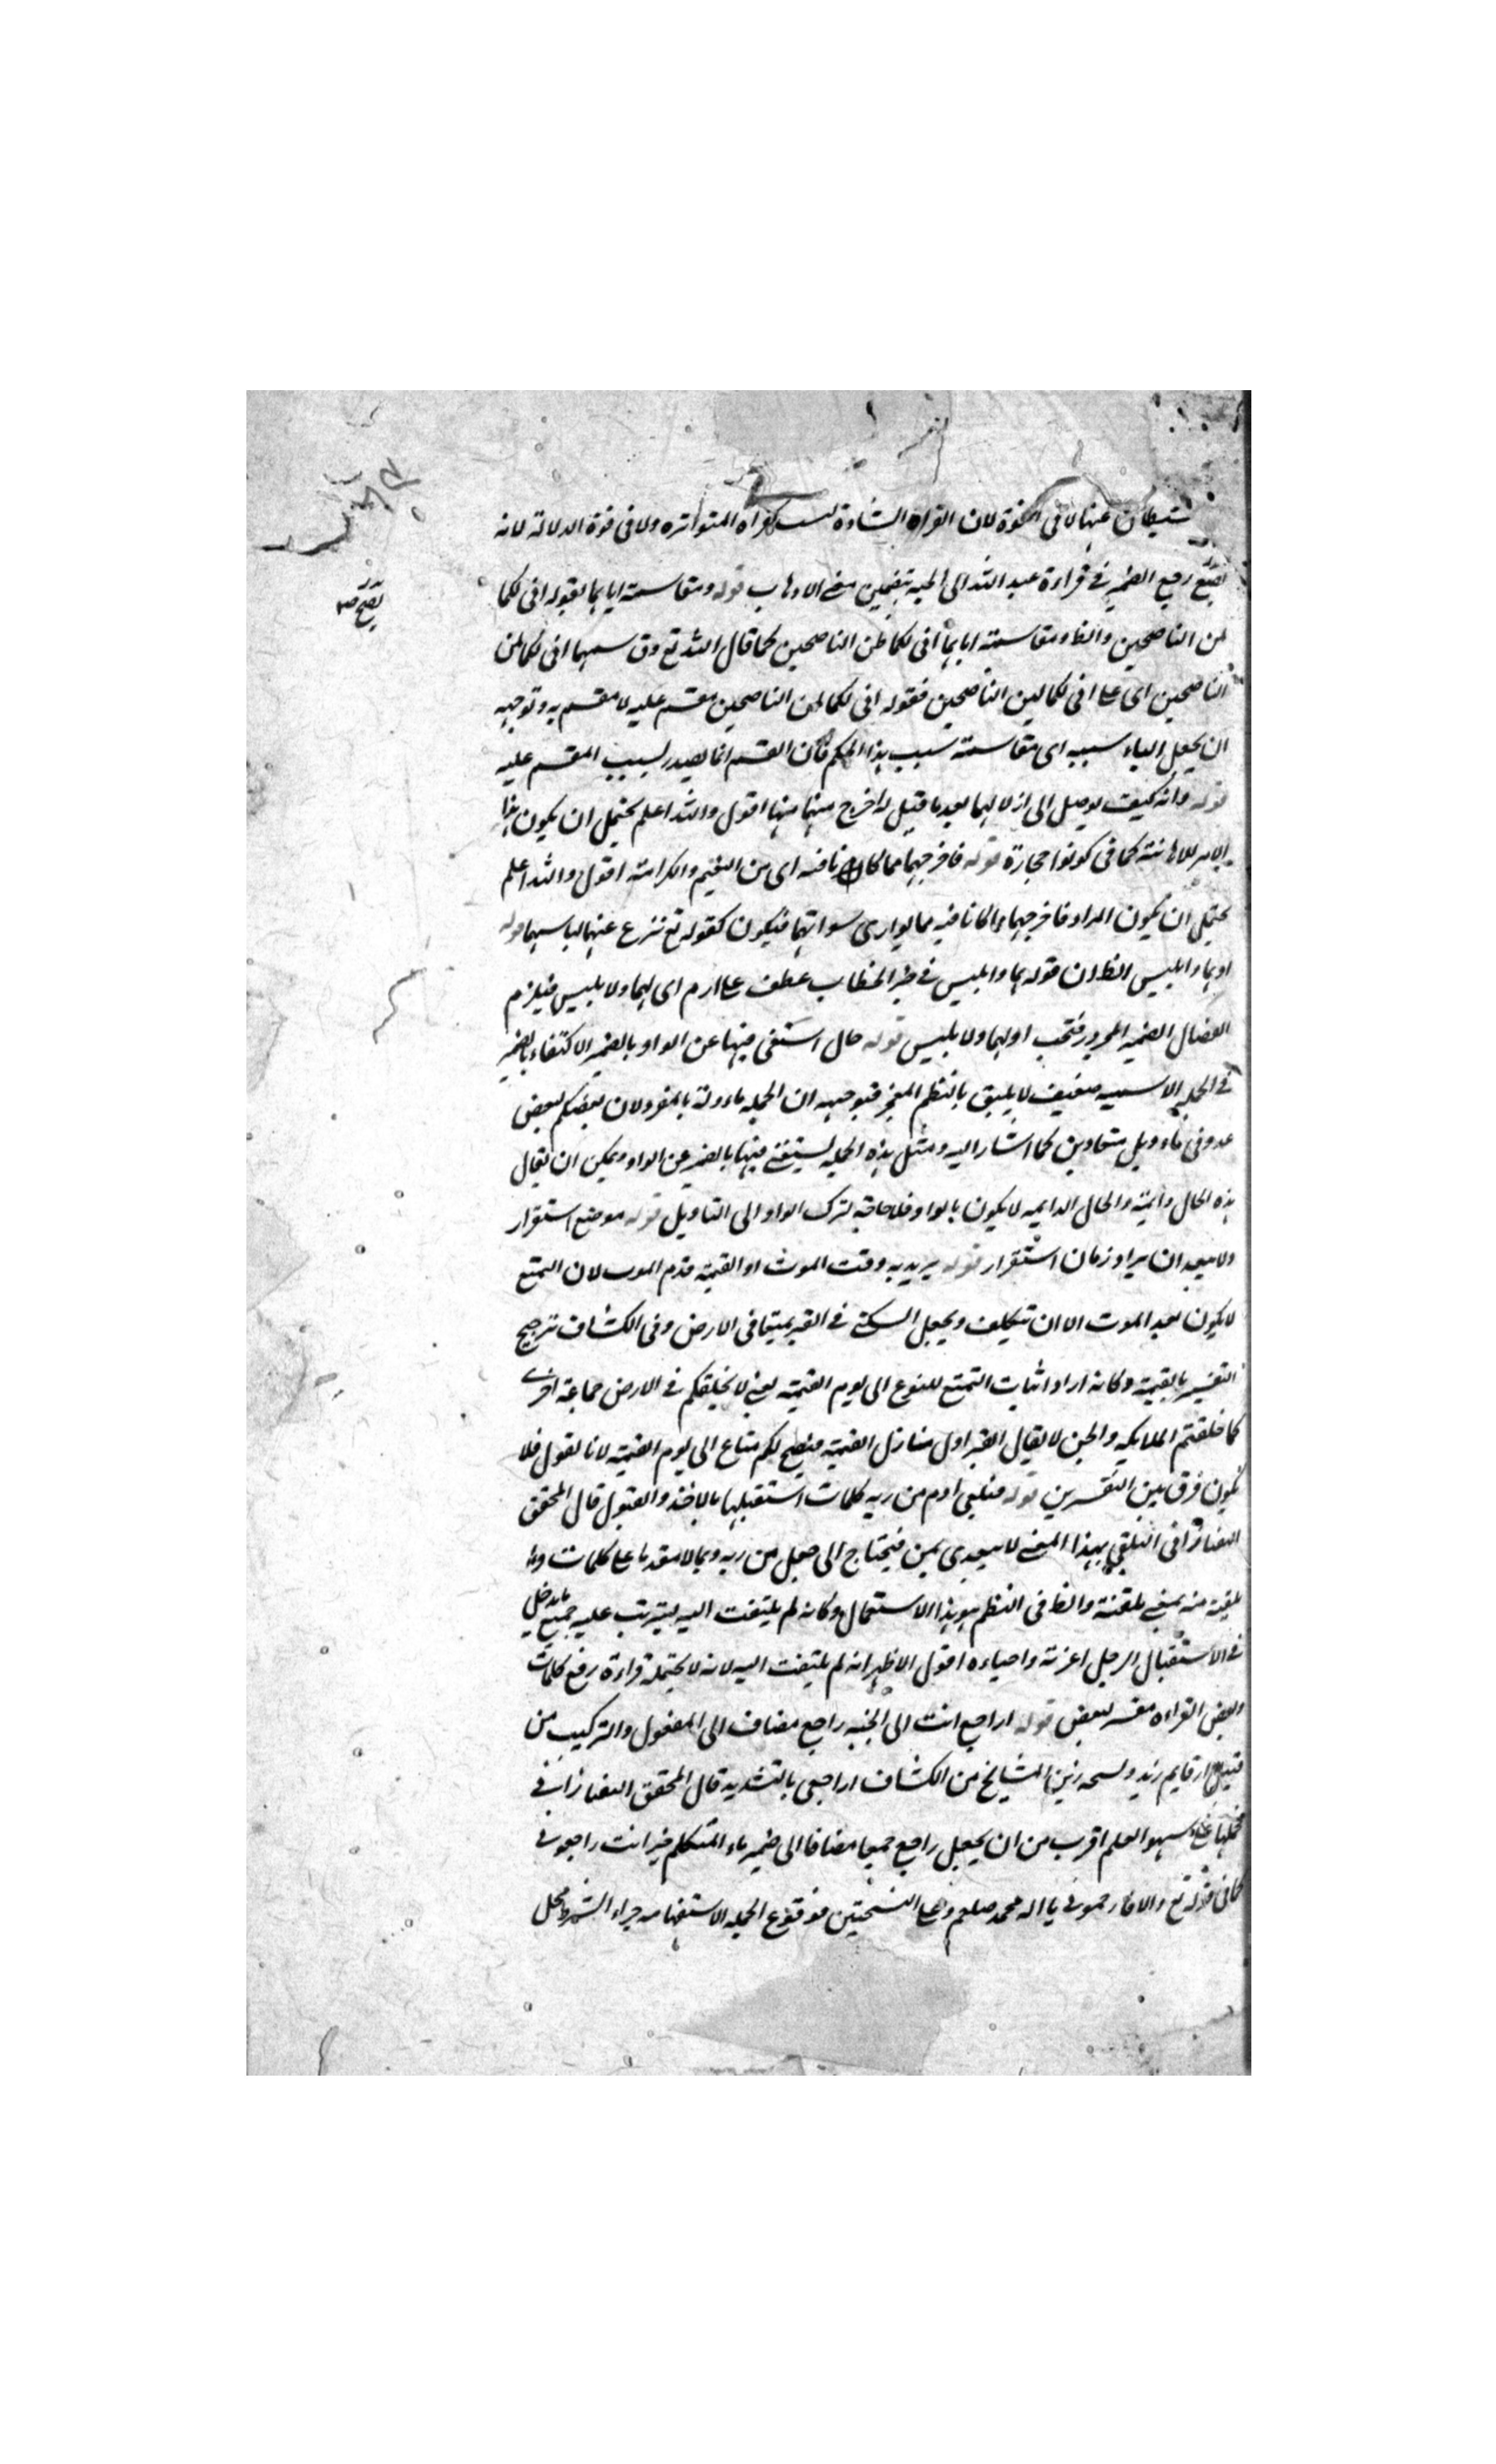 الشيطان عنها لا في القوة لان القراة الشاذة ليست كقراه المتواتره ولا في قوة الدلالة لانه
يصح رجع الضمير في قراءة عبد الله الى الجنه بتضمين معنى الاذهاب قوله ومقاسمته اياهما بقوله انى لكما
لمن الناصحين والظ ومقاسمته اياهما انى لكما لمن الناصحين كما قال الله تع وقاسمهما انى لكما لمن
الناصحين اى على انى لكما لمن الناصحين فقوله انى لكما لمن الناصحين مقسم عليه لا مقسم به وتوجيهه
ان يجعل الباء سببيه اى مقاسمته بسبب هذا الحكم فان القسم انما يصدر بسبب المقسم عليه
قوله وانه كيف توصل الى ازلالهما بعد ما قيل له اخرج منها اقول والله اعلم يحتمل ان يكون هذا
الامر للاهانته كما فى كونوا حجارة قوله فاخرجهما مما كانا فيه اى من النعيم والكرامته اقول والله اعلم
يحتمل ان يكون المراد فاخرجهما مما كانا فيه مما يوارى سوآتهما فيكون كقوله تع ينزع عنهما لباسهما قوله
او هما وابليس الظ ان قوله هما وابليس في حيز الخطاب عطف على ادم اى لهما ولابليس فيلزم
انفصال الضمير المجرور فيجب او لهما ولابليس قوله حال استغنى فيها عن الواو بالضمير الاكتفاء بالضمير
في الجمله الاسميه ضعيف لا يليق بالنظم المعجز فتوجيهه ان الجمله ماءولة بالمفرد لان بعضكم لبعض
عدو فى تاءويل متعادين كما اشار اليه ومثل هذه الجمله يستغنى فيها بالضمير عن الواو ويمكن ان يقال
هذه الحال دائمته والحال الدايمه لا يكون بالواو فلا حاجة لترك الواو الى التاويل قوله موضع استقرار
ولا يبعد ان يراد زمان استقرار قوله يريد به وقت الموت او القيمة قدم الموت لان التمتع
لا يكون بعد الموت الا ان يتكلف ويجعل السكنى في القبر تمتعا في الارض وفى الكشاف ترجيح
التفسير بالقيمة وكانه اراد اثبات التمتع للنوع الى يوم القيمة يعني لا يخلفكم في الارض جماعة اخرى
كما خلفتم الملايكه والجن لا يقال القبر اول منازل القيمة فيصح لكم متاع الى يوم القيمة لانا نقول فلا
يكون فرق بين التفسيرين قوله فتلقى ادم من ربه كلمات استقبلها بالاخذ والقبول قال المحقق
التفتازانى التلقي بهذا المعنى لا يتعدى بمن فيحتاج الى جعل من ربه حالا مقدما على كلمات وان
تلقيت منه بمعنى تلقنت والظ فى النظم هو هذا الاستعمال وكانه لم يلتفت اليه ليترتب عليه جميع ما يدخل
في الاستقبال الرجل اعزته واحباءه اقول الاظهر انه لم يلتفت اليه لانه لا يحتمله قراءة رفع كلمات
وبعض القراءه مفسر لبعض قوله اراجع انت الى الجنه راجع مضاف الى المفعول والتركيب من
قبيل اقايم زيد ونسخه زين المشايخ من الكشاف اراجعي بالتشديد قال المحقق التفتازانى
فحملها على سهو القلم اقرب من ان يجعل راجع جمعا مضافا الى ضمير ياء المتكلم خبر انت راجعونى
كما فى قوله تع والا فارحموني يا اله محمد صلعم وعلى النسختين فوقوع الجمله الاستفهاميه جزاء الشرط محل
يصح صح